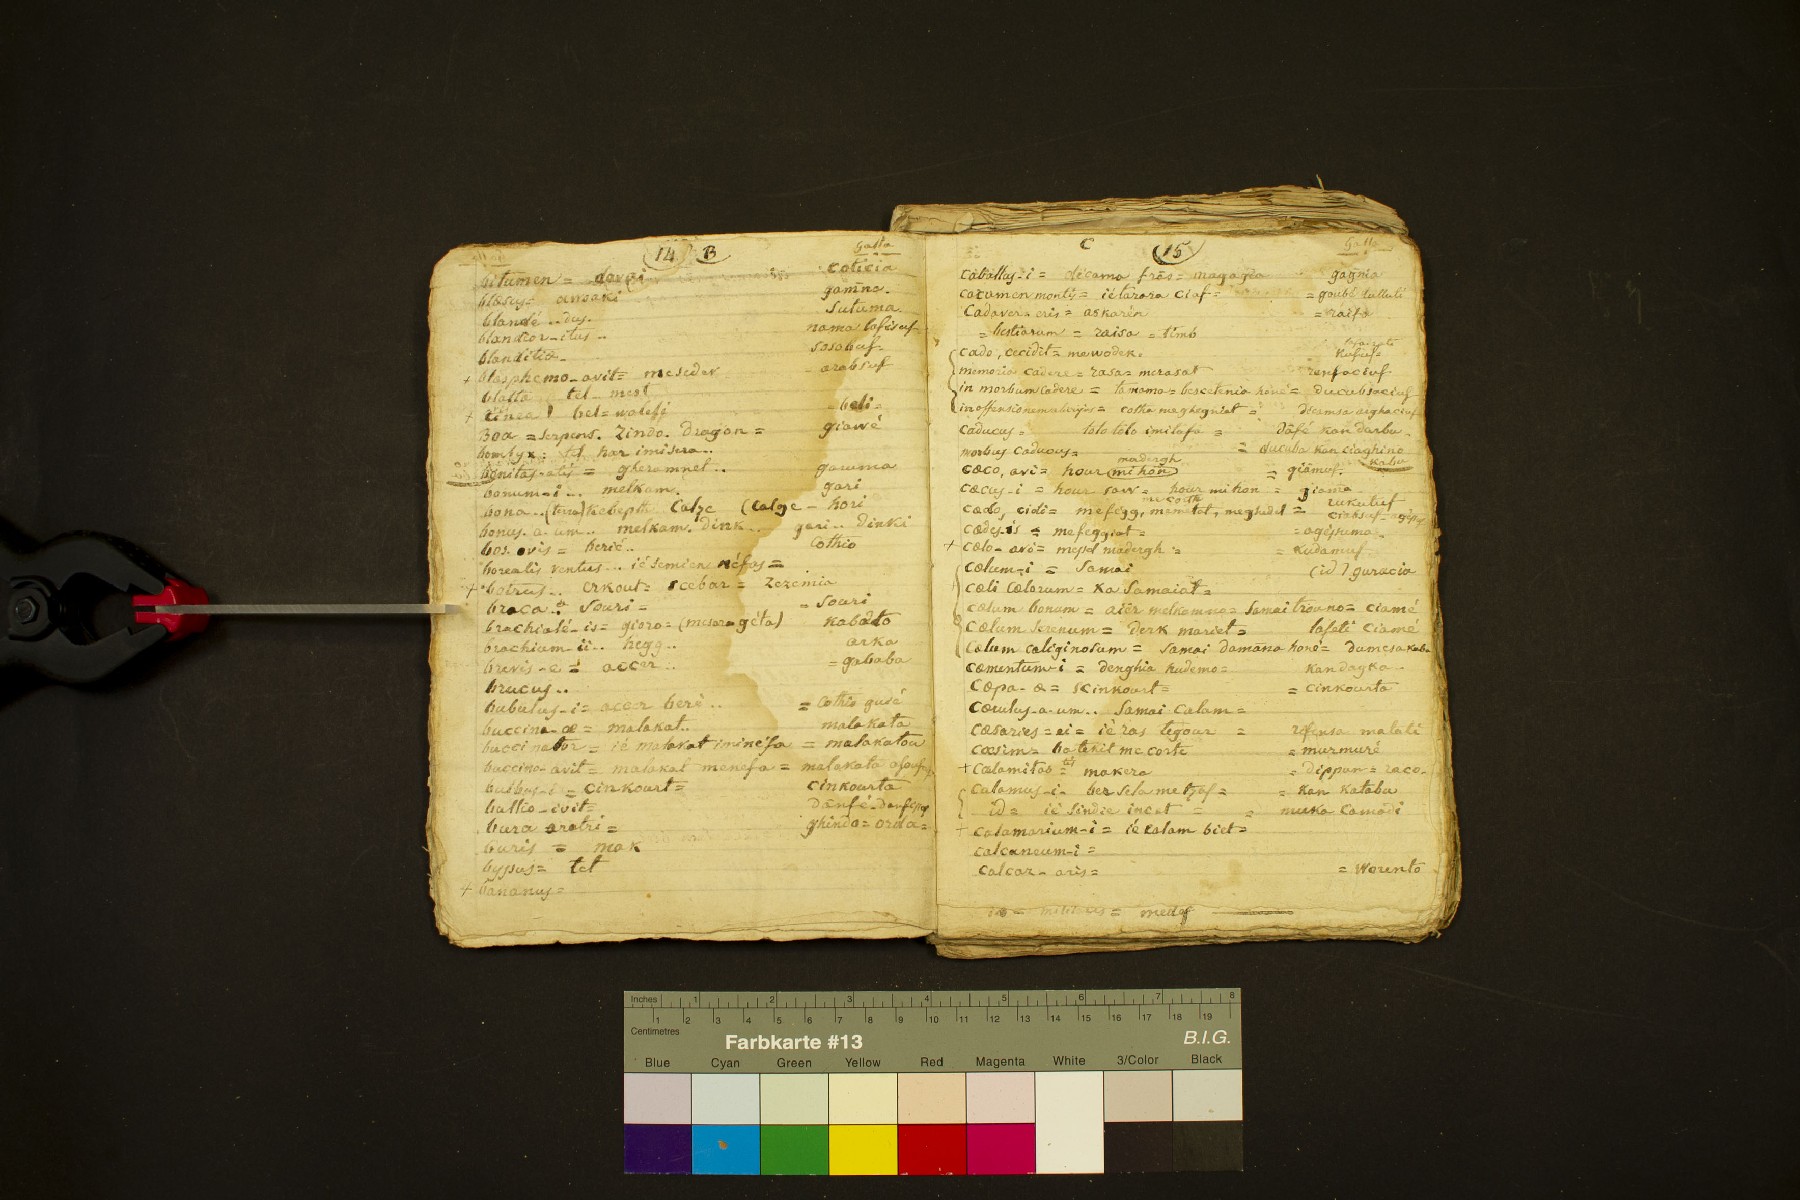 14 B
Galla
bitumen = coticia
blæsus = ansaki gamna.
blandé .. dus. sutuma
blandior-itus .. nama lafisuf
blanditiæ- sosobuf-
+ blasphemo-avit = mesedev arabsuf
blatta tel- mest
+ tinea bel= walefé - beli =
Boa = serpens. Zindo. Dragon = giawé
bombyx: tel har imisera..
bonitas-atis = gheramnet .. garuma
bonum-i .. melkam. gari
bona .. (terra) Calge (calge - hori
bonus-a-um.. melkam. dink .. gari .. dinki
bos. ovis = berié.. Cothio
borealis ventus ... ié semien néfas =
+ botrus.. erkout = scebar = zezemia
braca .. souri = = souri
brachialé-is = giora = (mesaragéta) kabatto
brachium-ii .. hegg .. arka
brevis-e = accer .. = gababa
brucus ..
bubulus-i = accer berè .. = Cothio gudé
buccina-æ = malakat .. malakata
buccinator = ié malakat iminéfa = malakatou
buccino-avit = malakat menefa = malakata
bulbus-i = cinkourt = cinkourta
bullio-ivit =
bura aratri = ghindo = orda =
buris = mak
byssus = tet
+ bananus =
C 15
Galla
caballus-i = decama frés = magagia gagnia
cacumen montis = ié tarara ciaf = = goubé tulluli
Cadaver-eris = askarin = raifa
= bestiarum = raisa = timb
cado, cecidit = mawodek. kufuf =
memoria cadere = rasa = merasat renfaciuf
in morbum cadere = tamama = bescetenia honé = ducubsaciuf
Caducus = tolo tolo imilafa = dafé kan darbu
morbus caducus = = ducuba kan ciaghino
kabu
madergh
cæco, avi = hour (mihon) = giamuf.
cæcus-i = hour saw = hour mihon = giama
mecorth
cædo, cidi = mefegg, mametat, rukutuf
cædes-is = mefeggiat = = agessuma
+ cælo-avi = mesel madergh = = kudamuf
cælum-i = Samai (id) guracia
cæli cælorum = Ka Samaiat =
cælum bonum = aiér melkamno = Samai trouno = ciamé
Cælum serenum = derk mariet = lafeti ciamé
Cælum caliginosum = samai damana honé = dumesa kaba
cæmentum-i = denghia hudemo = kan dagka -
Cæpa-æ = scinkourt = = cinkourta
cærulus-a-um .. Samai Calam =
cæsaries-ei = ié ras tegour = rifensa malati
cæsim = ba tekit mecorte = murmuré
+ calamitas = makera = dippun = raco -
Calamus-i - ber sela metzaf = = kan kataba
id = ié sindie incet = = muka Camadi
+ calamarium-i = ié calam biet =
calcaneum-i =
calcar-aris = = Worento
id = militaris = medef
Inches 1 2 3 4 5 6 7 8
1 2 3 4 5 6 7 8 9 10 11 12 13 14 15 16 17 18 19
Centimetres
Farbkarte #13 B.I.G.
Blue Cyan Green Yellow Red Magenta White 3/Color Black